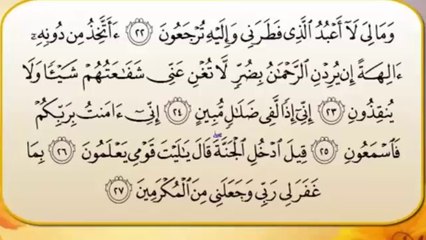 وَمَا لِيَ لَآ أَعْبُدُ ٱلَّذِى فَطَرَنِى وَإِلَيْهِ تُرْجَعُونَ ٢٢ ءَأَتَّخِذُ مِن دُونِهِۦٓ
ءَالِهَةً إِن يُرِدْنِ ٱلرَّحْمَٰنُ بِضُرٍّ لَّا تُغْنِ عَنِّى شَفَٰعَتُهُمْ شَيْـًٔا وَلَا
يُنقِذُونِ ٢٣ إِنِّىٓ إِذًا لَّفِى ضَلَٰلٍ مُّبِينٍ ٢٤ إِنِّىٓ ءَامَنتُ بِرَبِّكُمْ
فَٱسْمَعُونِ ٢٥ قِيلَ ٱدْخُلِ ٱلْجَنَّةَ ۖ قَالَ يَٰلَيْتَ قَوْمِى يَعْلَمُونَ ٢٦ بِمَا
غَفَرَ لِى رَبِّى وَجَعَلَنِى مِنَ ٱلْمُكْرَمِينَ ٢٧